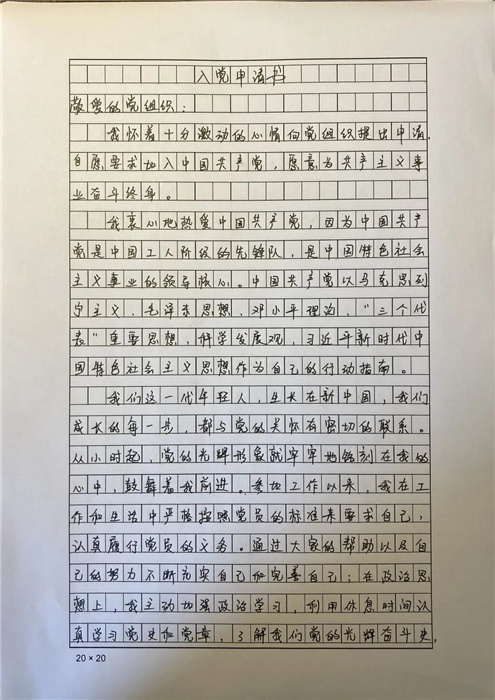 入党申请书
敬爱的党组织:
我怀着十分激动的心情向党组织提出申请,
自愿要求加入中国共产党,愿意为共产主义事
业奋斗终身。
我衷心地热爱中国共产党,因为中国共产
党是中国工人阶级的先锋队,是中国特色社会
主义事业的领导核心。中国共产党以马克思列
宁主义,毛泽东思想,邓小平理论,“三个代
表”重要思想,科学发展观,习近平新时代中
国特色社会主义思想作为自己的行动指南。
我们这一代年轻人,生长在新中国,我们
成长的每一步,都与党的关怀有密切的联系。
从小时起,党的光辉形象就牢牢地铭刻在我的
心中,鼓舞着我前进。参加工作以来,我在工
作和生活中严格按照党员的标准来要求自己,
认真履行党员的义务。通过大家的帮助以及自
己的努力不断充实自己和完善自己;在政治思
想上,我主动加强政治学习,利用休息时间认
真学习党史和党章,了解我们党的光辉奋斗史,
20×20